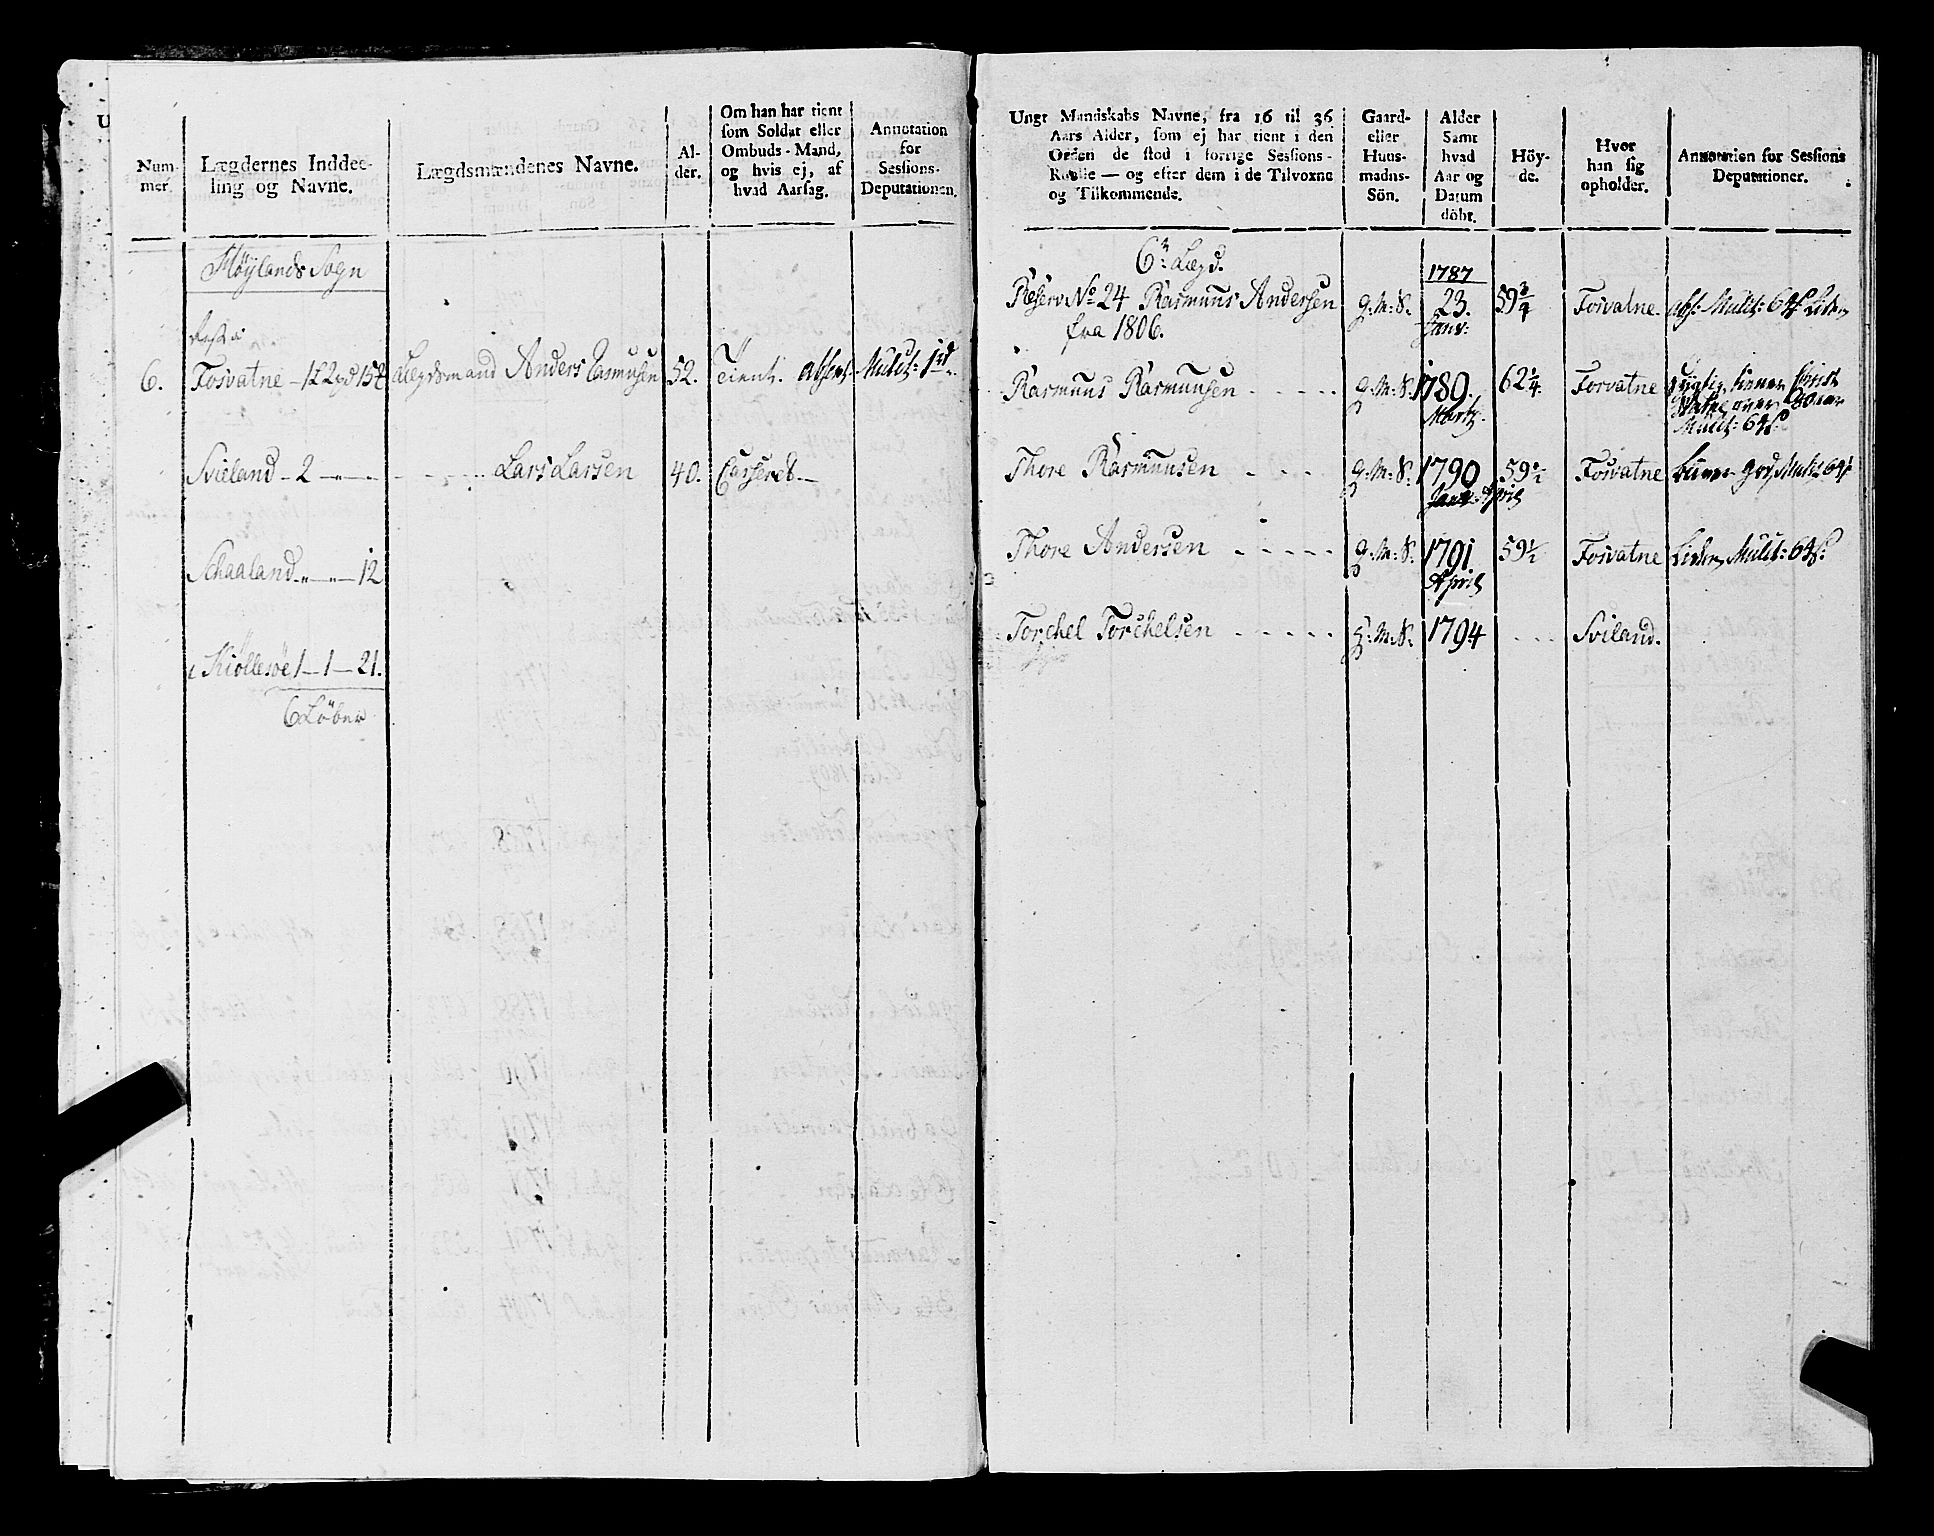 Num-
mer.
Lægdernes Inddee-
ling og Navne.
Lægdsmændenes Navne.
Al-
der.
Om han har tient
som Soldat eller
Ombuds-Mand,
og hvis ej, af
hvad Aarsag.
Annotation
for
Sessions-
Deputationen.
Höylands Sogn
6.
Fosvatne
Lægdsmand Anders Rasmusen
52.
Tient.
absent Mulct: 1rd
Svieland - 2
Lars Larsen
40.
Casseret
Schaaland 12
Kiöllesöe 1 - 1 - 21.
6 Löber
Ungt Mandskabs Navne, fra 16 til 36
Aars Alder, som ej har tient i den
Orden de stod i forrige Sessions-
Roulle — og efter dem i de Tilvoxne
og Tilkommende.
Gaard-
eller
Huus-
mands-
Sön.
Alder
Samt
hvad
Aar og
Datum
döbt.
Höy-
de.
Hvor
han sig
opholder.
Annotation for Sessions
Deputationer.
6te Lægd.
Reserv No 24 Rasmus Andersen
fra 1806.
g: M: S.
1787
23.
Janv:
59 3/4
Fosvatne.
Rasmus Rasmussen
g: M: S.
1780.
Marty.
62 1/4
Fosvatne
Mulct: 64s.
Thore Rasmusen
g: M: S.
1790
April
59 1/2
Fosvatne
Thore Andersen
g: M: S.
1791
April
59 1/2
Fosvatne
Liden Mulct: 64s:
Torchel Torchelsen
g: M: S.
1794
Sviland.